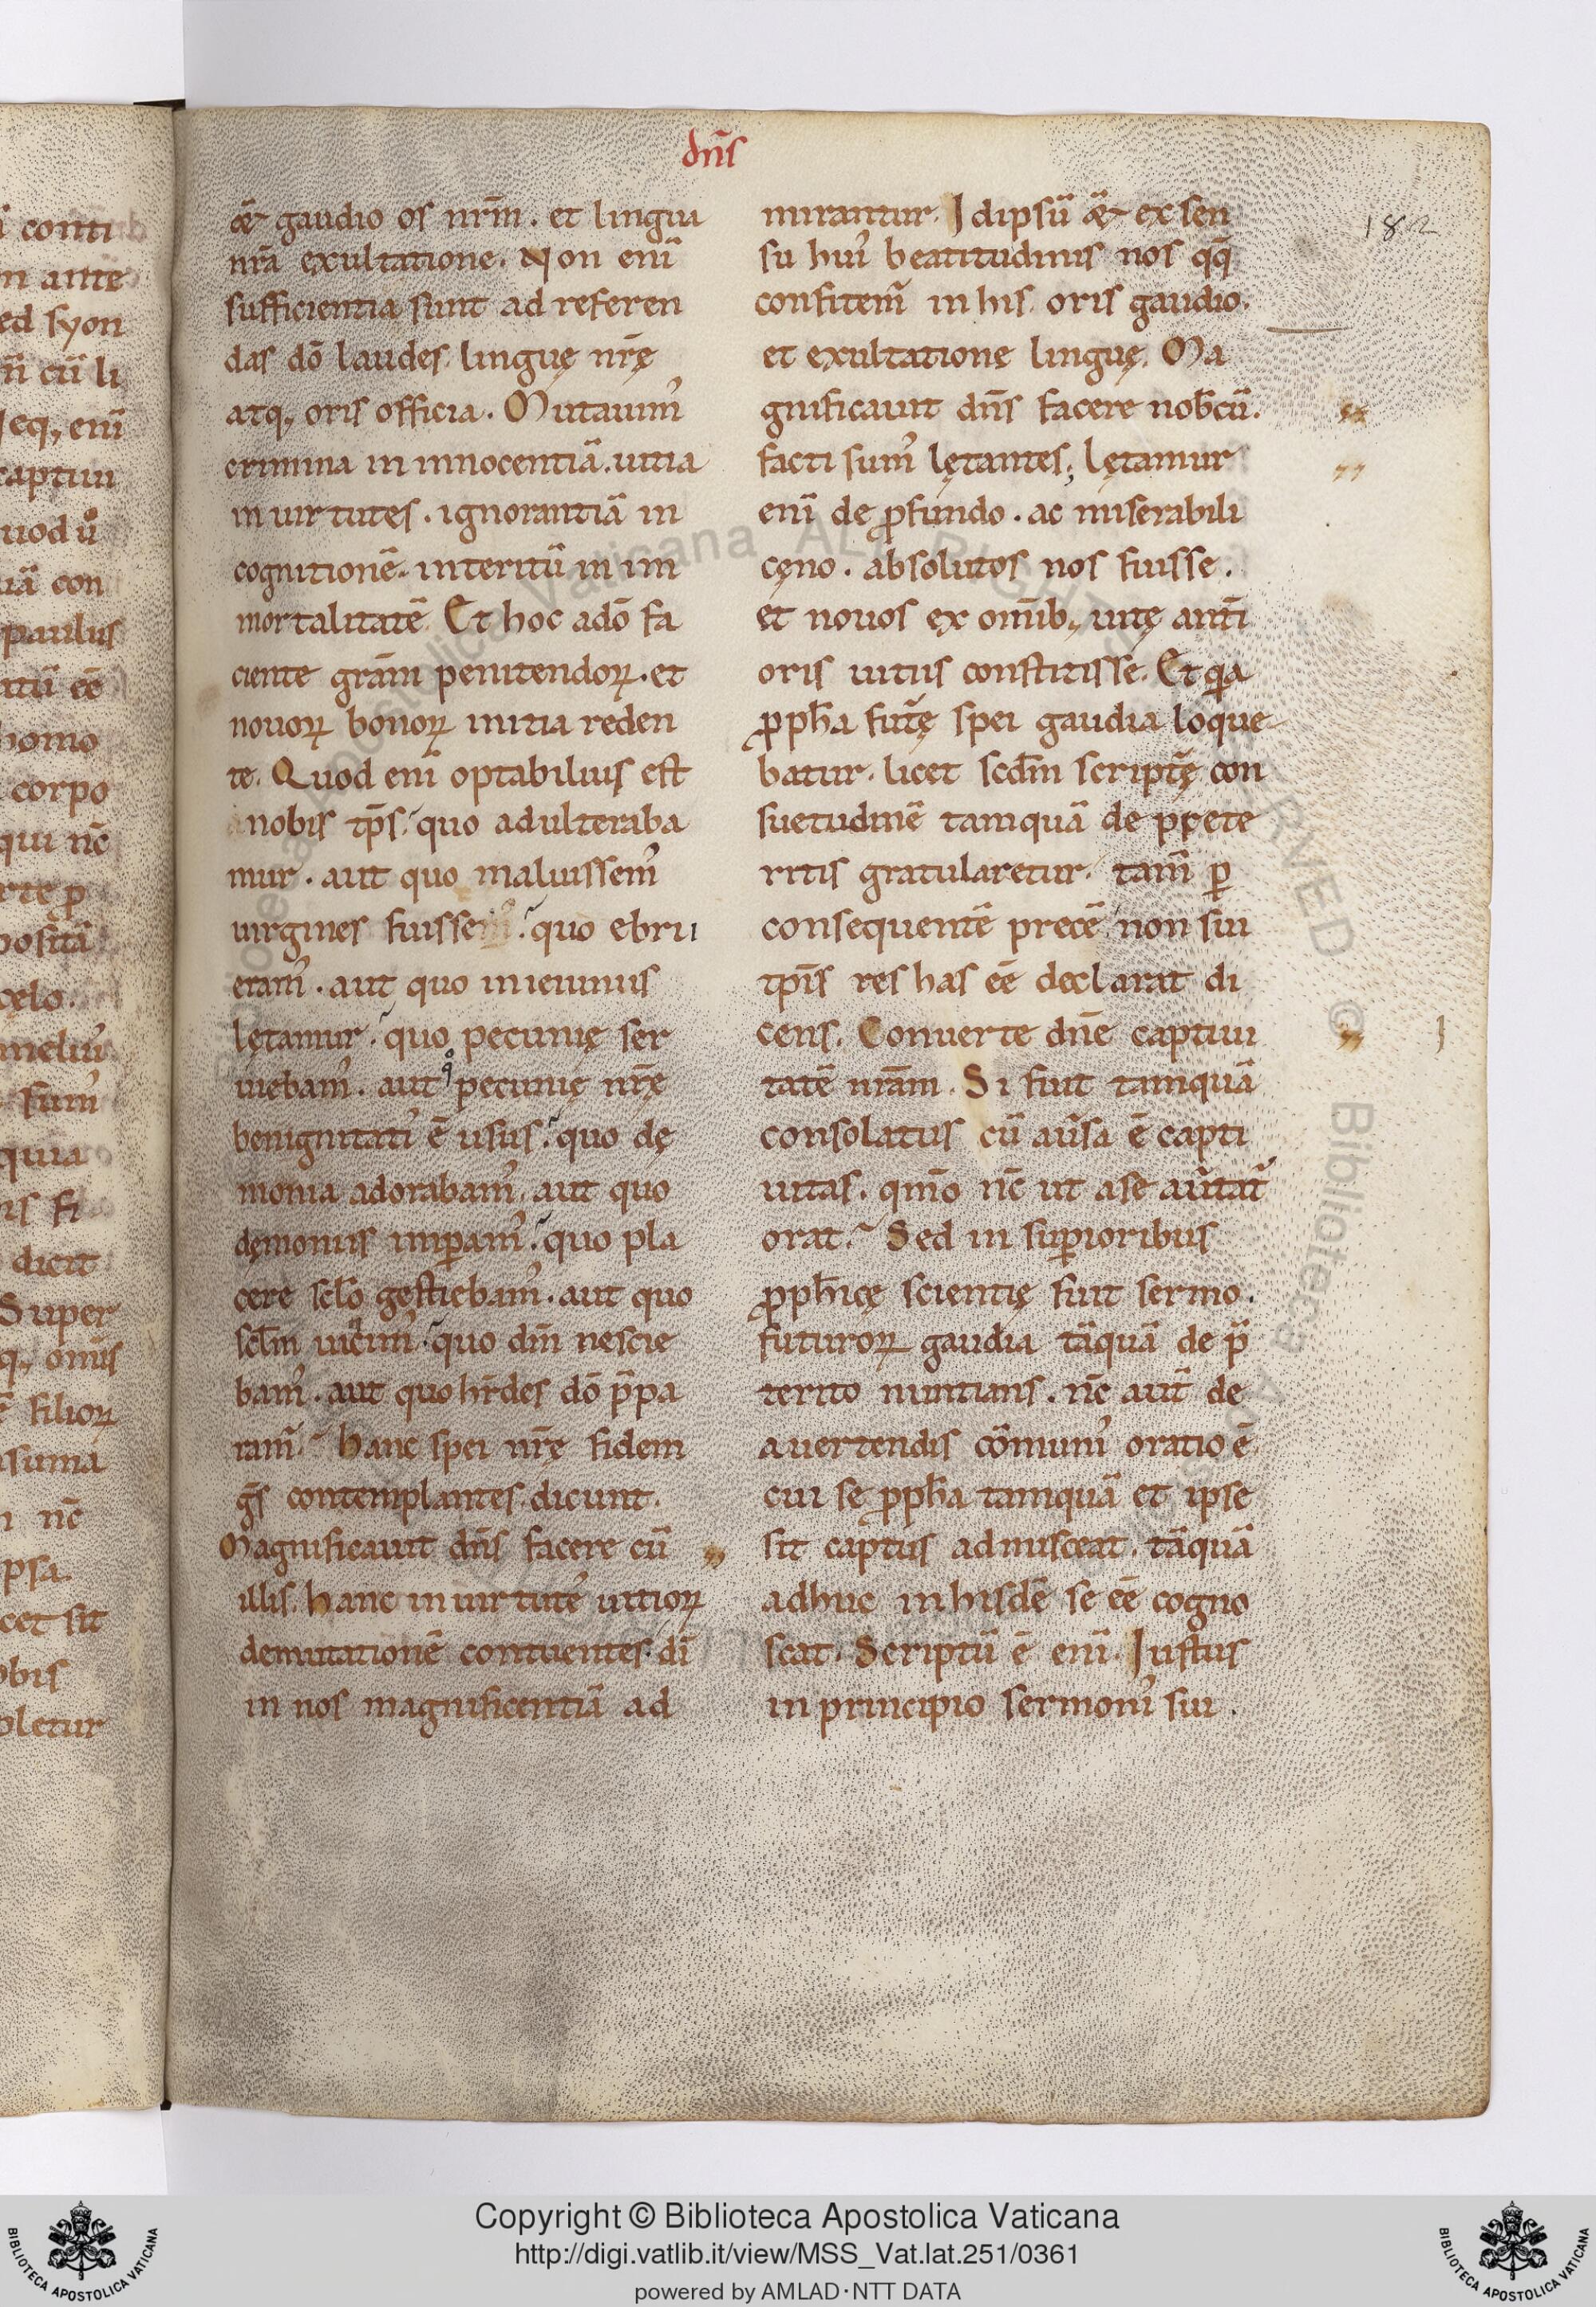 dn̄s
æ̃ gaudio os nr̄m. et lingua
nr̄a exultatione. Non enī
sufficientia sunt ad referen
das dō laudes. linguę nr̄ę
atq; oris officia. Mutauim᾽
crimina in innocentiā. uitia
in uirtutes. ignorantiā in
cognitionē. interitū in im
mortalitatē. Et hoc adō fa
ciente gr̄am penitendoꝝ. et
nouoꝝ bonoꝝ initia reden
te. Quod enī optabilius est
a nobis tp̄s. quo adulteraba
mur. aut quo maluissem᾽
uirgines fuissem᾽. quo ebrii
eram᾽. aut quo in ieiuniis
lętamur. quo pecunię ser
uiebam᾽. aut qͦ pecunię nr̄ę
benignitati᾽ ē usus. quo dę
monia adorabam᾽. aut quo
dęmoniis imꝑam᾽. quo pla
cere scl̄o gestiebam᾽. aut quo
scl̄m uicim᾽. quo dm̄ nescie
bam᾽. aut quo hr̄des dō p̄pa
ram᾽. Hanc spei nr̄ę fidem
ḡs contemplantes. dicunt.
Magnificauit dn̄s facere cū
illis. hanc in uirtutē uitioꝝ
demutationē contuentes. dī
in nos magnificentiā ad
mirantur. Idipsū æ̃ ex sen
su hui᾽ beatitudinis nos qq̄
confitem᾽ in his. oris gaudio.
et exultatione linguę. Ma
gnificauit dn̄s facere nob̄cū.
facti sum᾽ lętantes; lętamur
enī de ꝓfundo. ac miserabili
cęno. absolutos nos fuisse.
et nouos ex omīb; uitę anti
oris uitiis constitisse. Et qͣa
ꝓph̄a futr̄ę spei gaudia loque
batur. licet scdm̄ scriptr̄ę con
suetudinē tamquā de pręte
ritis gratularetur. tam̄ ꝑ
consequentē precē. non sui
tp̄is res has eē declarat di
cens. Conuerte dn̄e captiui
tatē nr̄am. Si fuit tamquā
consolatus cū au᾽sa ē capti
uitas. qm̄o nc̄ ut a se au᾽tat᾽
orat. Sed in suꝑioribus
ꝓph̄icę scientię fuit sermo.
futuroꝝ gaudia tāquā de p̄
terito nuntians. nc̄ aut̄ de
auertendis cōmuni᾽ oratio ē
cui se ꝓph̄a tamquā et ipse
sit captus admisceat. tāquā
adhuc in hisdē se eē cogno
scat. Scriptū ē enī. Iustus
in principio sermoni᾽ sui.
182
Copyright © Biblioteca Apostolica Vaticana
http://digi.vatlib.it/view/MSS_Vat.lat.251/0361
powered by AMLAD·NTT DATA